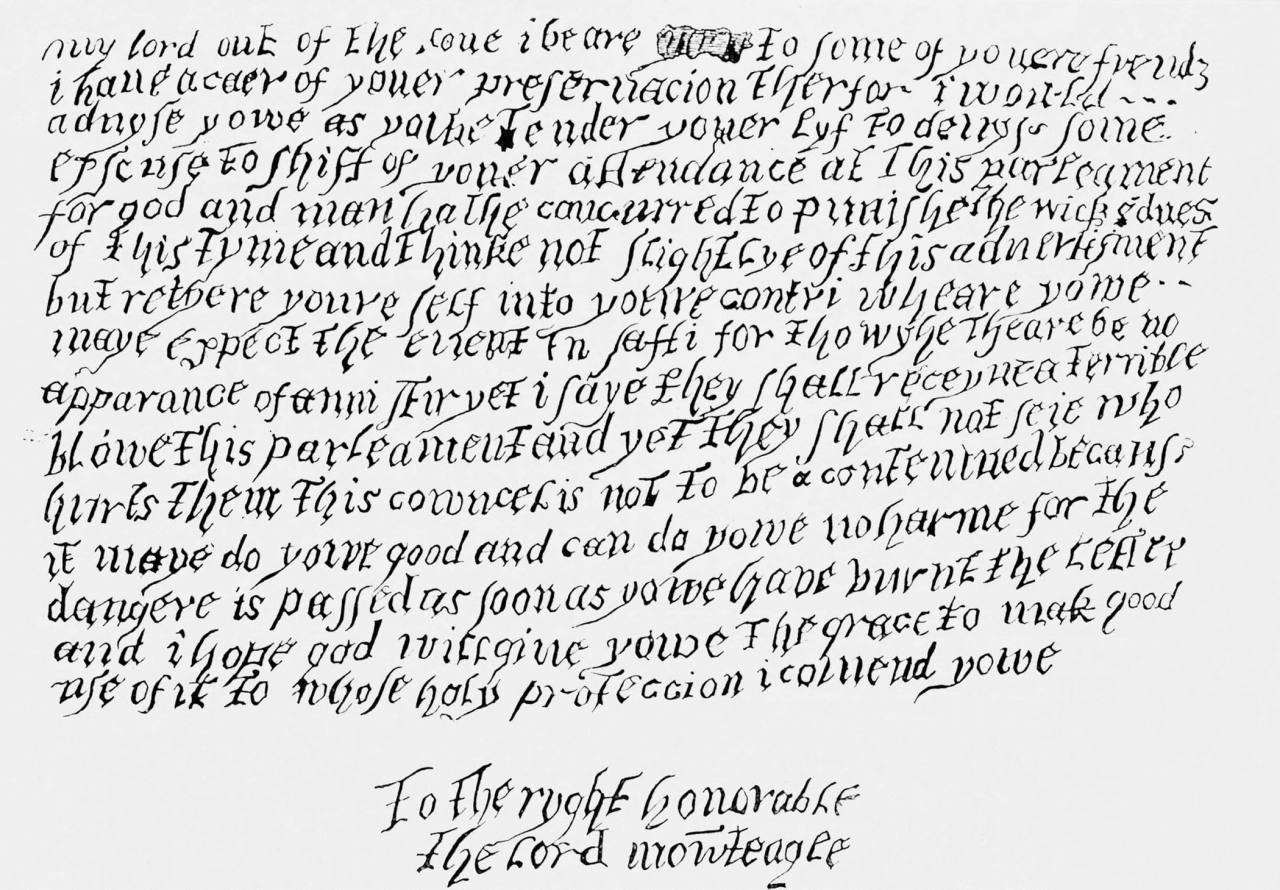 my lord out of the loue i beare to some of youere frendz
i haue a caer of youer preseruacion therfor i would
aduyse yowe as yowe tender youer lyf to deuyse some
epscuse to shift of youer attendance at this parleament
for god and man hathe concurred to punishe the wickednes
of this tyme and thinke not slightlye of this aduertisment
but retyere youre self into youre contri wheare yowe
maye expect the euent in safti for thowghe theare be no
apparance of anni stir yet i saye they shall receyue a terrible
blowe this parleament and yet they shall not seie who
hurts them this cowncel is not to be a contemned because
it maye do yowe good and can do yowe no harme for the
dangere is passed as soon as yowe have burnt the letter
and i hope god will giue yowe the grace to mak good
use of it to whose holy proteccion i comend yowe
To the ryght honorable
the lord mowteagle